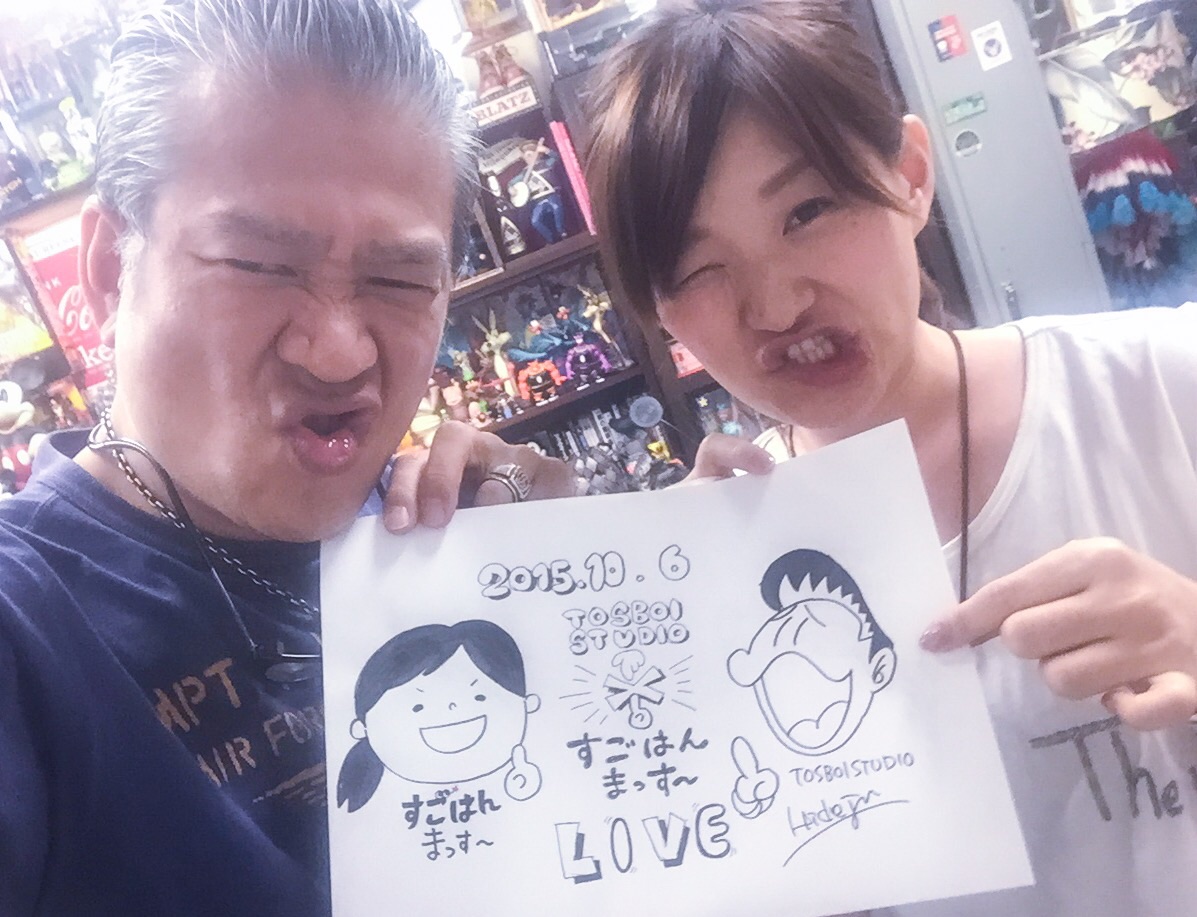 BLATZ
2015.10.6
TOSBOI
STUDIO
すごはん
まっす〜
LIVE
すごはん
まっす〜
TOSBOISTUDIO
Hidejin
APT
AIR FOR
The